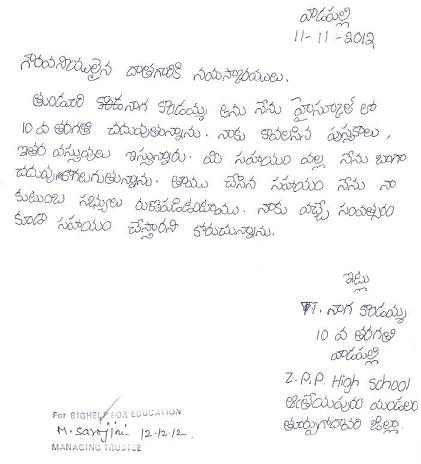 వాడపల్లి
11-11-2012
గౌరవనీయులైన దాతగారికి నమస్కారములు.
తుండూరి నాగ కొండమ్మ అను నేను హైస్కూల్ లో
10 వ తరగతి చదువుతున్నాను. నాకు కావలసిన పుస్తకాలు,
ఇతర వస్తువులు ఇస్తున్నారు. మీ సహాయం వల్ల నేను బాగా
చదువుకోగలుగుతున్నాను. తాము చేసిన సహాయం నేను నా
కుటుంబ సభ్యులు రుణపడివుంటాము. నాకు వచ్చే సంవత్సరం
కూడా సహాయం చేస్తారని కోరుచున్నాను.
ఇట్లు
T. నాగ కొండమ్మ
10 వ తరగతి
వాడపల్లి
Z.P.P. High School
ఆత్రేయపురం మండలం
తూర్పుగోదావరి జిల్లా.
For BIGHELP FOR EDUCATION
M. Sarojini 12.12.12.
MANAGING TRUSTEE